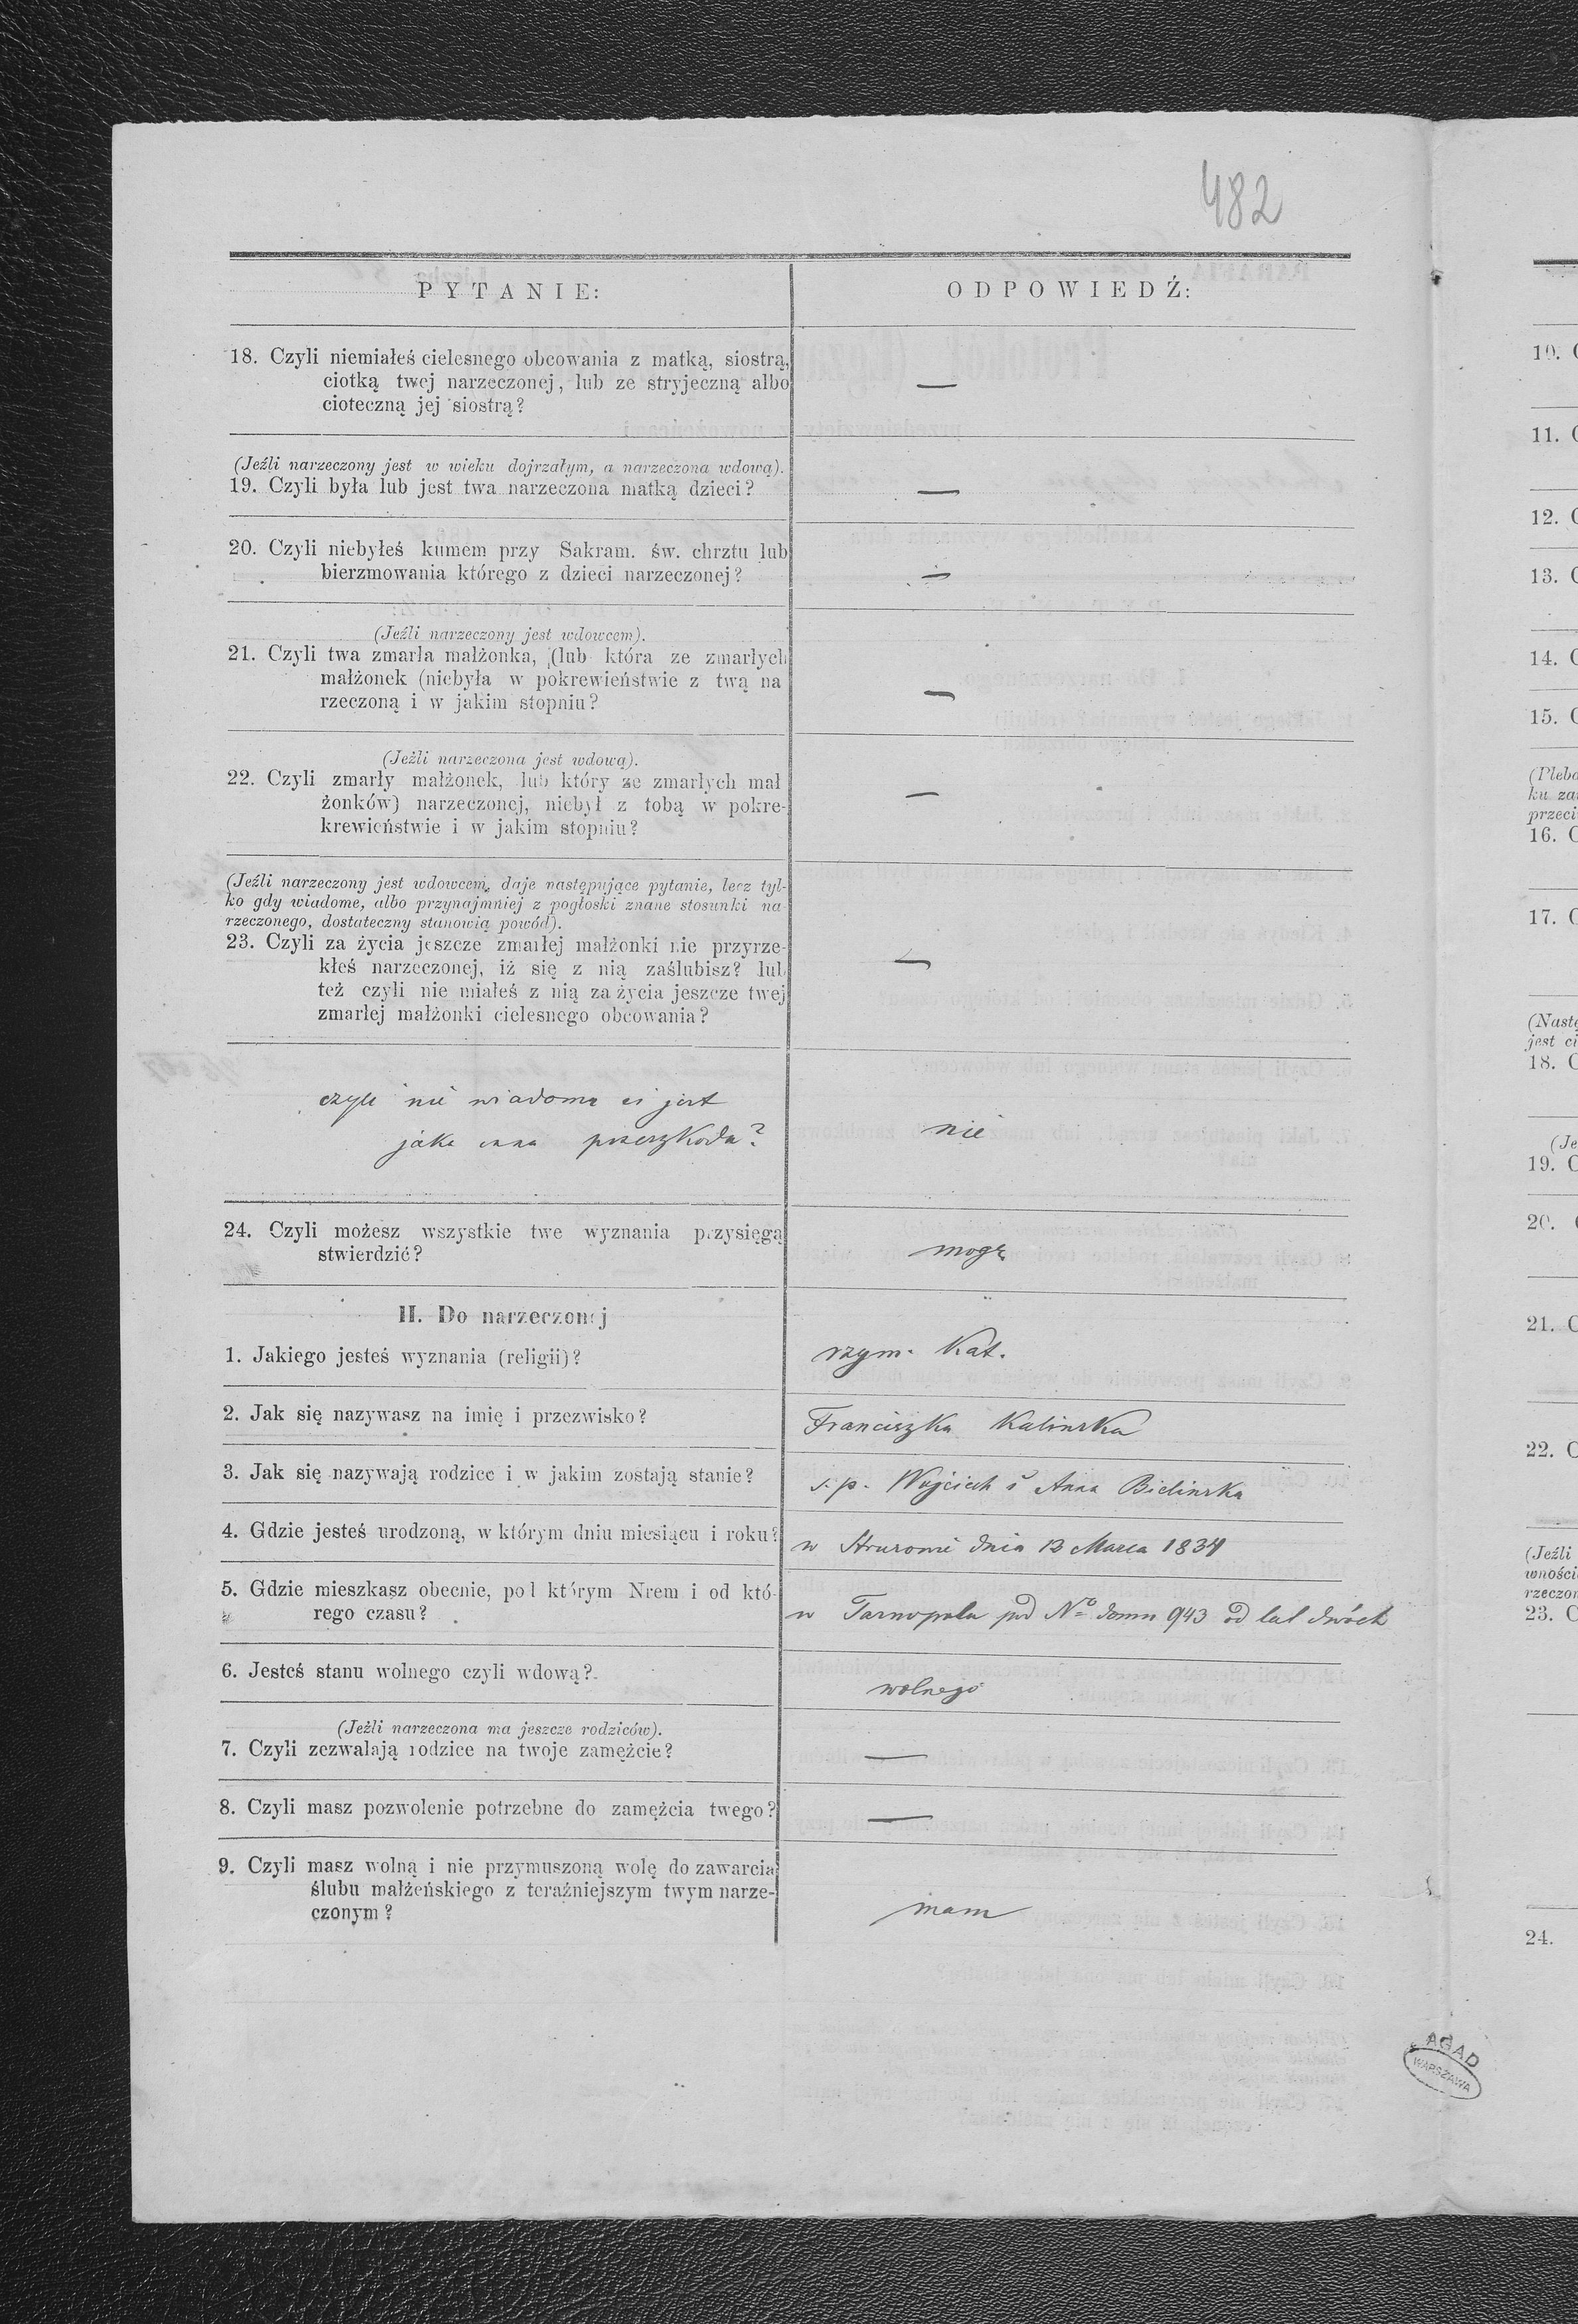 482
PYTANIE:
ODPOWIEDŹ:
18. Czyli niemiałeś cielesnego obcowania z matką, siostrą,
ciotką twej narzeczonej, lub ze stryjeczną albo
cioteczną jej siostrą?
—
(Jeźli narzeczony jest w wieku dojrzałym, a narzeczona wdową).
19. Czyli była lub jest twa narzeczona matką dzieci?
—
20. Czyli niebyłeś kumem przy Sakram. św. chrztu lub
bierzmowania którego z dzieci narzeczonej?
—
(Jeźli narzeczony jest wdowcem).
21. Czyli twa zmarła małżonka, (lub która ze zmarłych
małżonek (niebyła w pokrewieństwie z twą na
rzeczoną i w jakim stopniu?
—
(Jeżli narzeczona jest wdową).
22. Czyli zmarły małżonek, lub który ze zmarłych mał
żonków) narzeczonej, niebył z tobą w pokre-
krewieństwie i w jakim stopniu?
—
(Jeźli narzeczony jest wdowcem, daje następujące pytanie, lecz tyl-
ko gdy wiadome, albo przynajmniej z pogłoski znane stosunki na
rzeczonego, dostateczny stanowią powód).
23. Czyli za życia jeszcze zmarłej małżonki nie przyrze-
kłeś narzeczonej, iż się z nią zaślubisz? lub
też czyli nie miałeś z nią za życia jeszcze twej
zmarłej małżonki cielesnego obcowania?
—
czyli nie wiadoma ci jest
jaka inna przeszkoda?
nie
24. Czyli możesz wszystkie twe wyznania przysięgą
stwierdzić?
mogę
II. Do narzeczonej
1. Jakiego jesteś wyznania (religii)?
rzym. Kat.
2. Jak się nazywasz na imię i przezwisko?
Franciszka Kalinska
3. Jak się nazywają rodzice i w jakim zostają stanie?
s. p. Wojciech i Anna Bielinska
4. Gdzie jesteś urodzoną, w którym dniu miesiącu i roku?
w dnia 13 Marca 1834
5. Gdzie mieszkasz obecnie, pod którym Nrem i od któ-
rego czasu?
w Tarnopolu pod No domu 943 od lat dwóch
6. Jesteś stanu wolnego czyli wdową?
wolnego
(Jeżli narzeczona ma jeszcze rodziców).
7. Czyli zezwalają rodzice na twoje zamężcie?
—
8. Czyli masz pozwolenie potrzebne do zamężcia twego?
—
9. Czyli masz wolną i nie przymuszoną wolę do zawarcia
ślubu małżeńskiego z teraźniejszym twym narze-
czonym?
mam
AGAD
WARSZAWA
10.
11.
12.
13.
14.
15.
16.
17.
18.
19.
20.
21.
22.
23.
24.